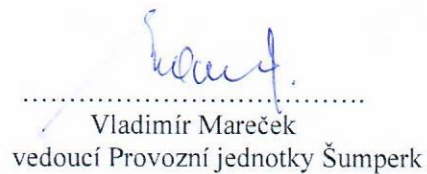 ........................................
Vladimír Mareček
vedoucí Provozní jednotky Šumperk